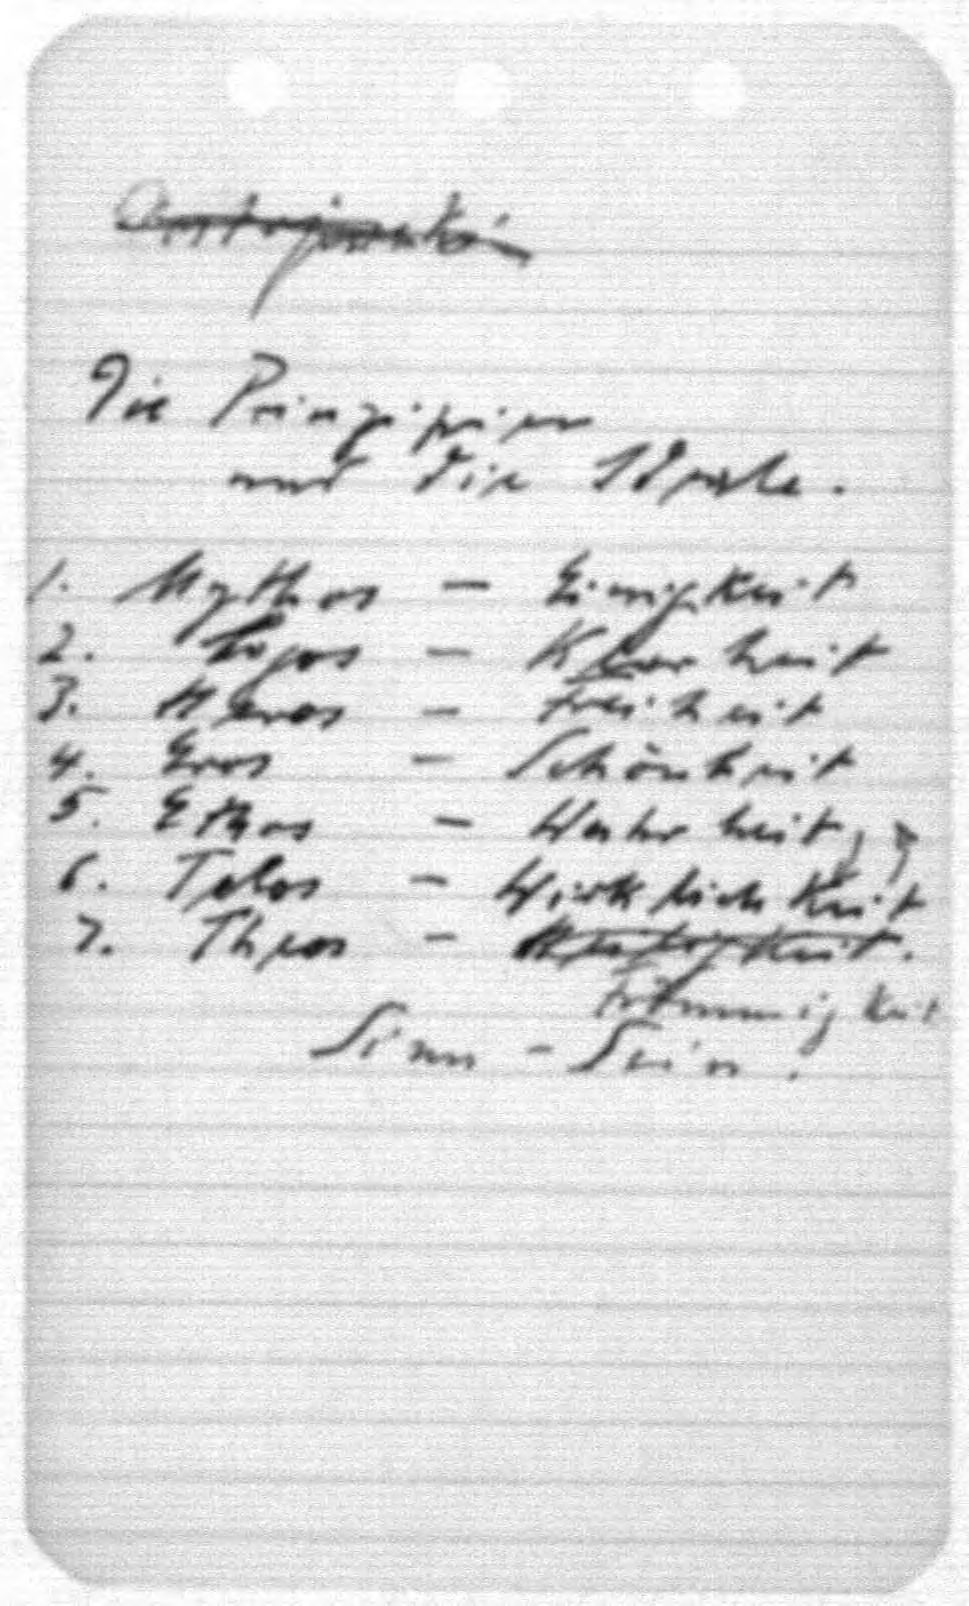 Die Prinzipien
und die Ideale.
1. Mythos - Einigkeit
2. Logos - Klarheit
3. Heros - Freiheit
4. Eros - Schönheit
5. Ethos - Wahrheit
6. Telos - Wirklichkeit
7. Theos -
Frömmigkeit
Sinn - Sein.